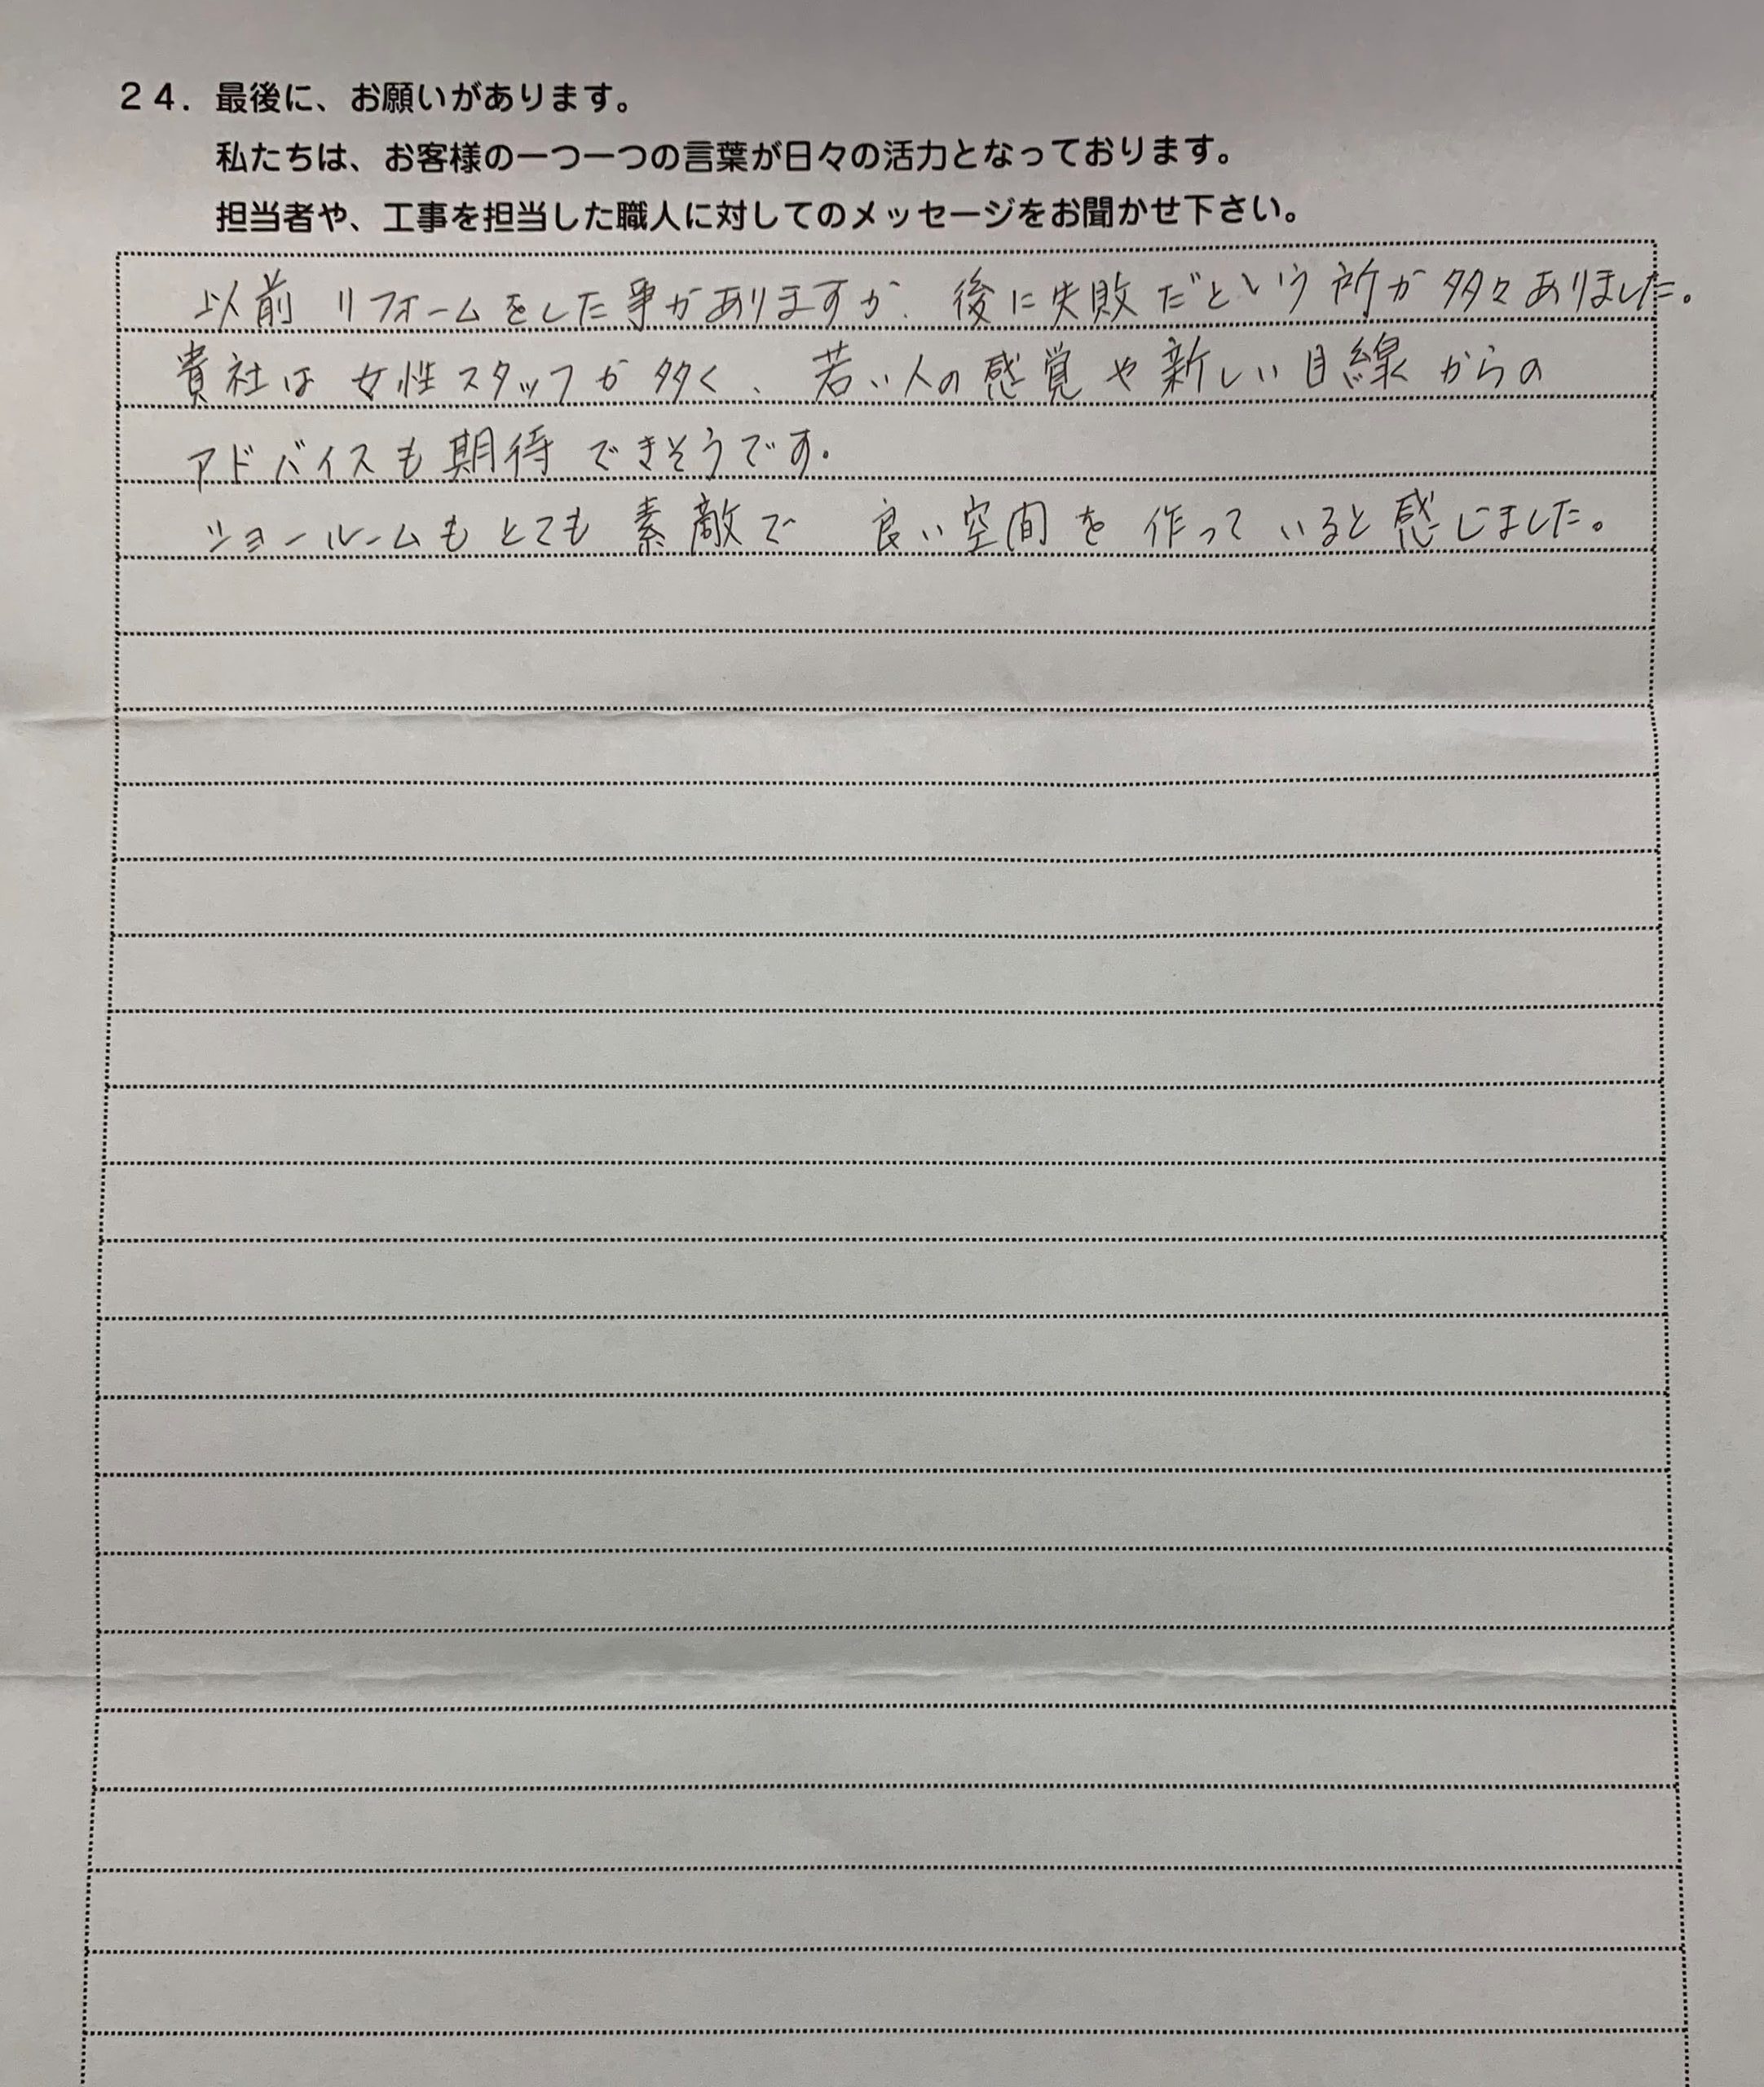 ２４．最後に、お願いがあります。
私たちは、お客様の一つ一つの言葉が日々の活力となっております。
担当者や、工事を担当した職人に対してのメッセージをお聞かせ下さい。
以前リフォームをした事がありますが、後に失敗だという所が多々ありました。
貴社は女性スタッフが多く、若い人の感覚や新しい目線からの
アドバイスも期待できそうです。
ショールームもとても素敵で 良い空間を作っていると感じました。